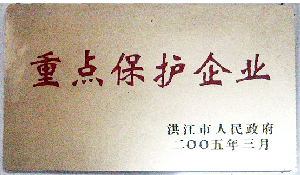 重点保护企业
洪江市人民政府
二〇〇五年三月